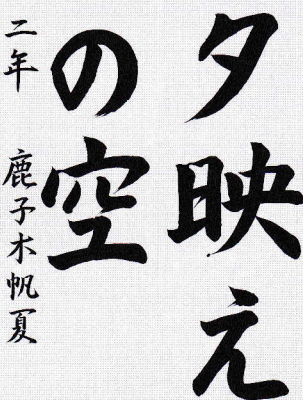 夕映え
の空
二年 鹿子木帆夏